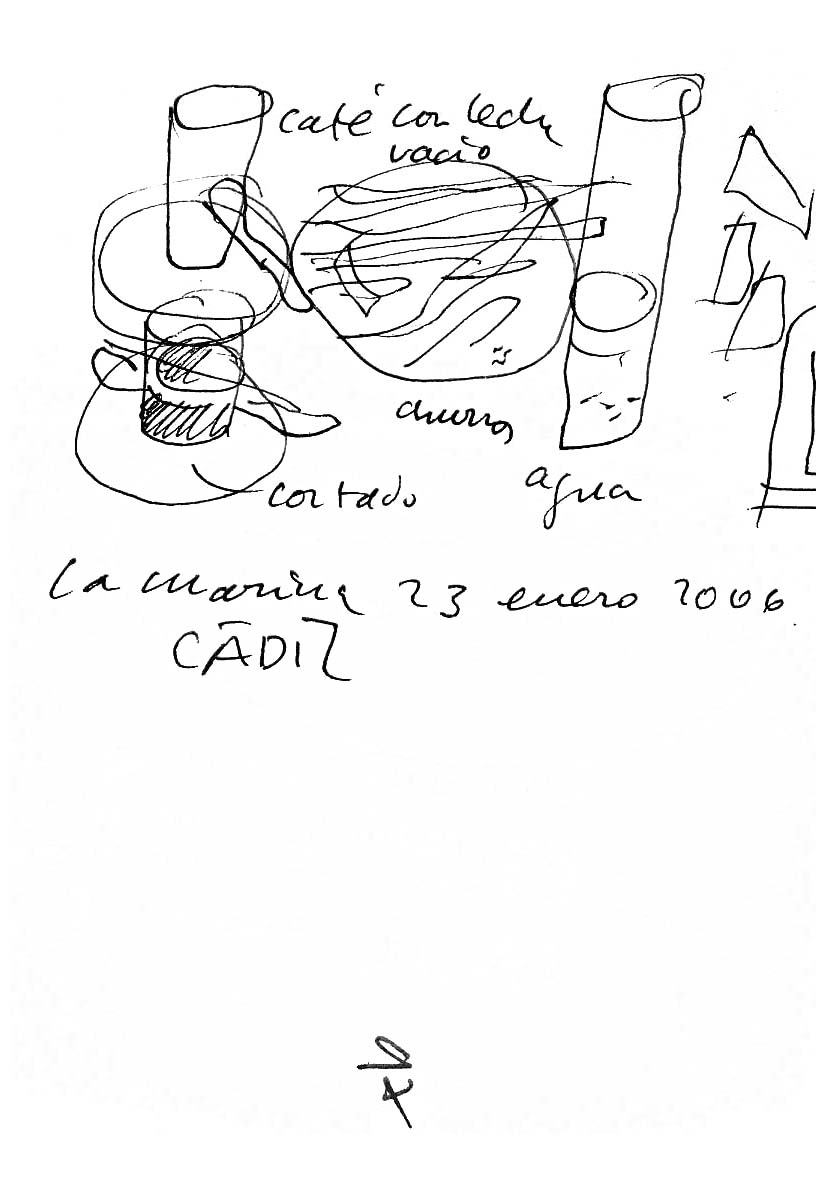 café con leche
vacío
churros
agua
cortado
La Marina 23 enero 2006
CÁDIZ